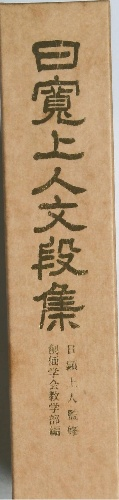 日寛上人文段集
日顕上人監修
創価学会教学部編